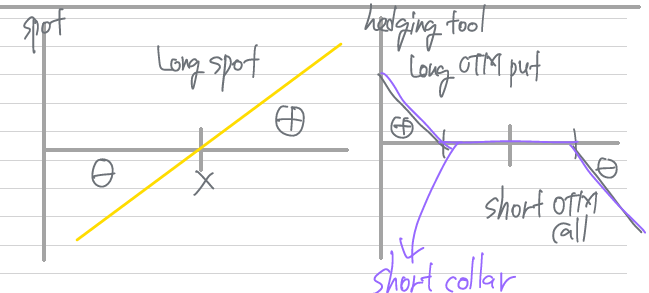 spot
Long spot
⊕
⊖
X
hedging tool
Long OTM put
⊕
⊖
short OTM
call
short collar